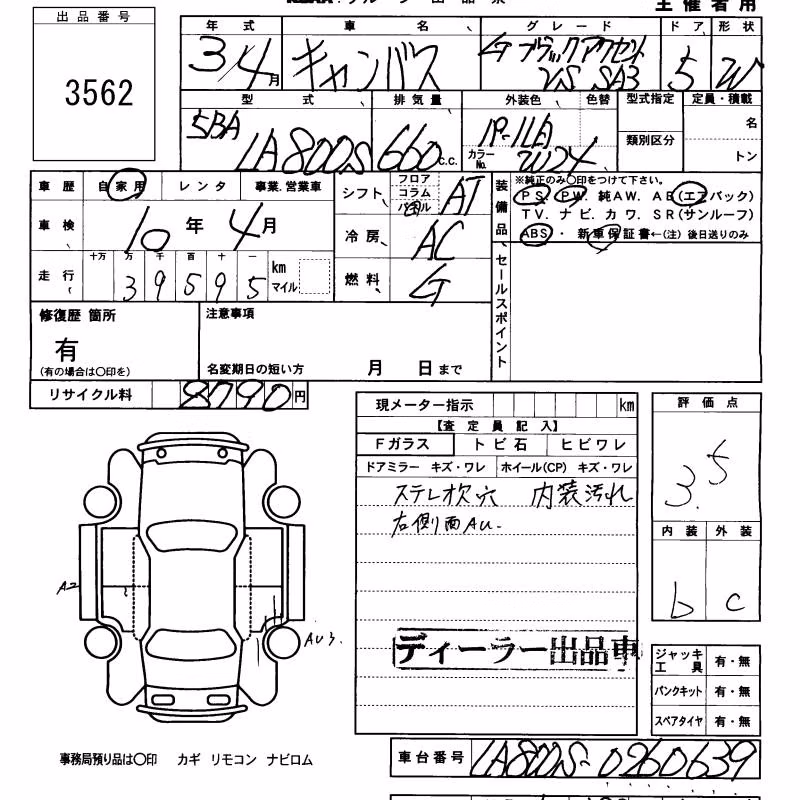 主催者用
出品番号
3562
年式 車名 グレード ドア 形状
3/4月 キャンバス G ブラックアクセント VS SA3 5 W
型式 排気量 外装色 色替 型式指定 定員・積載
5BA LA800S 660 c.c. カラーNo. W24 類別区分 名
トン
車歴 自家用 レンタ 事業.営業車
シフト フロア コラム AT
装備品 ※純正のみ○印をつけて下さい。
PS. PW. 純AW. AB(エアバック)
TV. ナビ. カワ. SR(サンルーフ)
ABS ・ 新車保証書←(注) 後日送りのみ
車検 10年 4月
冷房 AC
走行 十万 万 千 百 十 一
39595 km マイル
燃料 G
セールスポイント
修復歴 箇所
有
(有の場合は○印を)
注意事項
名変期日の短い方 月 日まで
リサイクル料 8790円
現メーター指示 km
【査定員記入】
Fガラス トビ石 ヒビワレ
ドアミラー キズ・ワレ ホイール(CP) キズ・ワレ
ステレオ欠穴 内装汚れ
右側面AU.
評価点
3.5
内装 外装
b c
A2
AU3.
ディーラー出品車
ジャッキ 工具 有・無
パンクキット 有・無
スペアタイヤ 有・無
事務局預り品は○印 カギ リモコン ナビロム
車台番号 LA800S-0260639